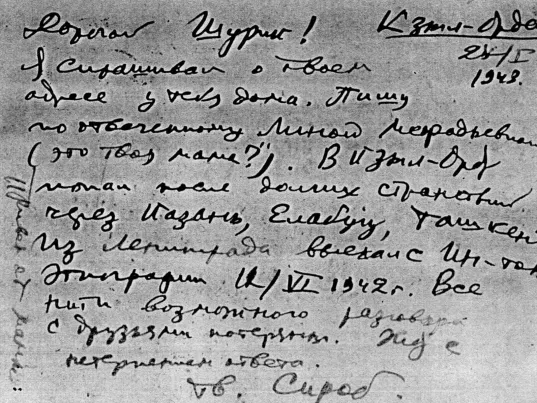 Дорогой Шурик! Кзыл-Орда
28/I
1943.
Я спрашивал о твоем
адресе у тебя дома. Пишу
по отвеченному Линой Мефодьевной
(это твоя мама?). В Кзыл-Орду
попал после долгих странствий
через Казань, Елабугу, Ташкент
Из Ленинграда выехал с Ин-том
Этнографии 12/VI 1942 г. Все
нити возможного разговора
с друзьями потеряны. Жду с
нетерпением ответа.
Тв. Сироб.
Привет от мамы